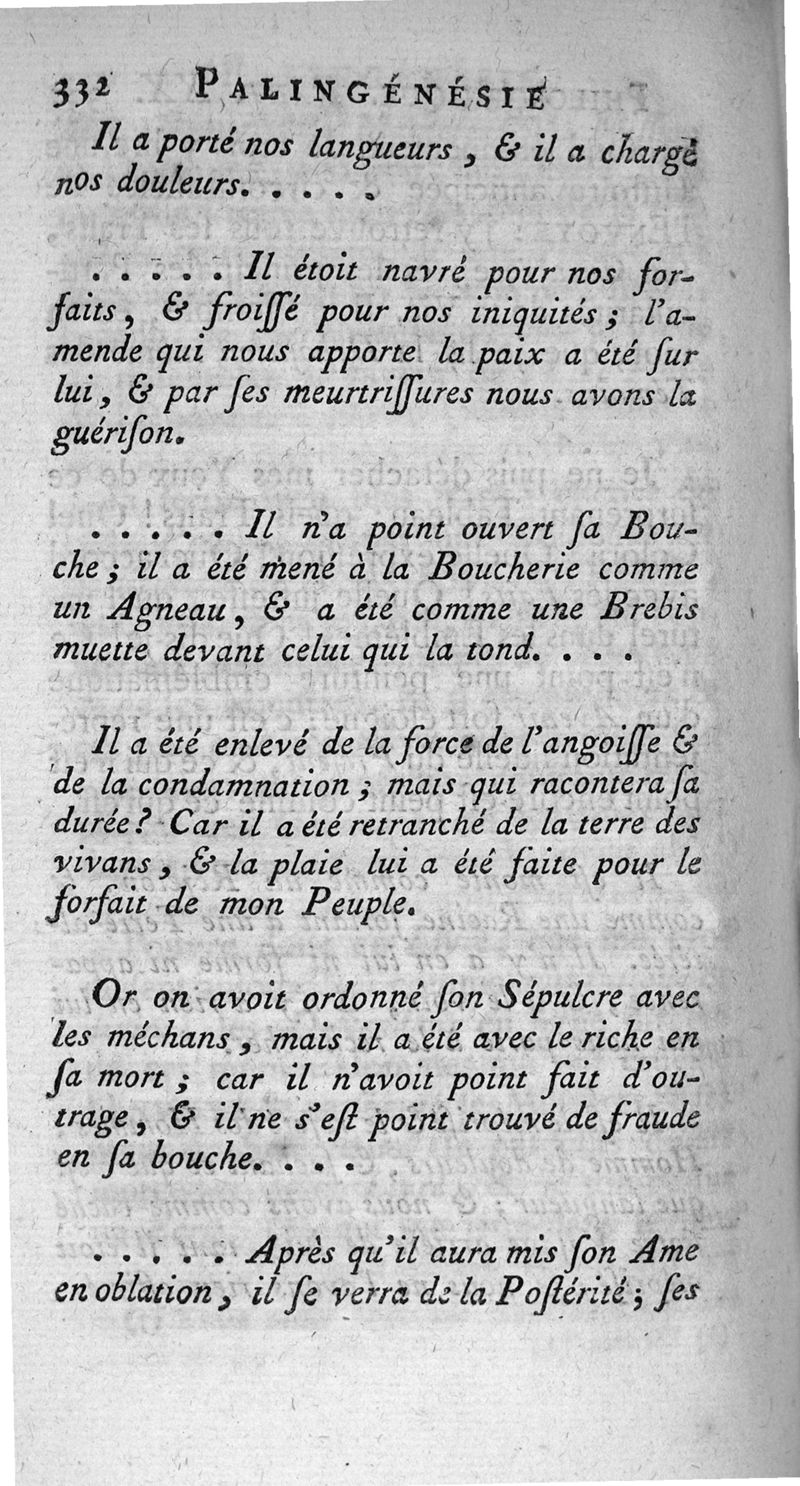 332 PALINGÉNÉSIE
Il a porté nos langueurs, & il a chargé
nos douleurs. . . . .
. . . . . Il étoit navré pour nos for-
faits, & froiſſé pour nos iniquités ; l'a-
mende qui nous apporte la paix a été ſur
lui, & par ſes meurtriſſures nous avons la
guériſon.
. . . . . Il n'a point ouvert ſa Bou-
che ; il a été mené à la Boucherie comme
un Agneau, & a été comme une Brebis
muette devant celui qui la tond. . . .
Il a été enlevé de la force de l'angoiſſe &
de la condamnation ; mais qui racontera ſa
durée? Car il a été retranché de la terre des
vivans, & la plaie lui a été faite pour le
forfait de mon Peuple.
Or on avoit ordonné ſon Sépulcre avec
les méchans, mais il a été avec le riche en
ſa mort ; car il n'avoit point fait d'ou-
trage, & il ne s'eſt point trouvé de fraude
en ſa bouche. . . .
. . . . . Après qu'il aura mis ſon Ame
en oblation, il ſe verra de la Poſtérité ; ſes